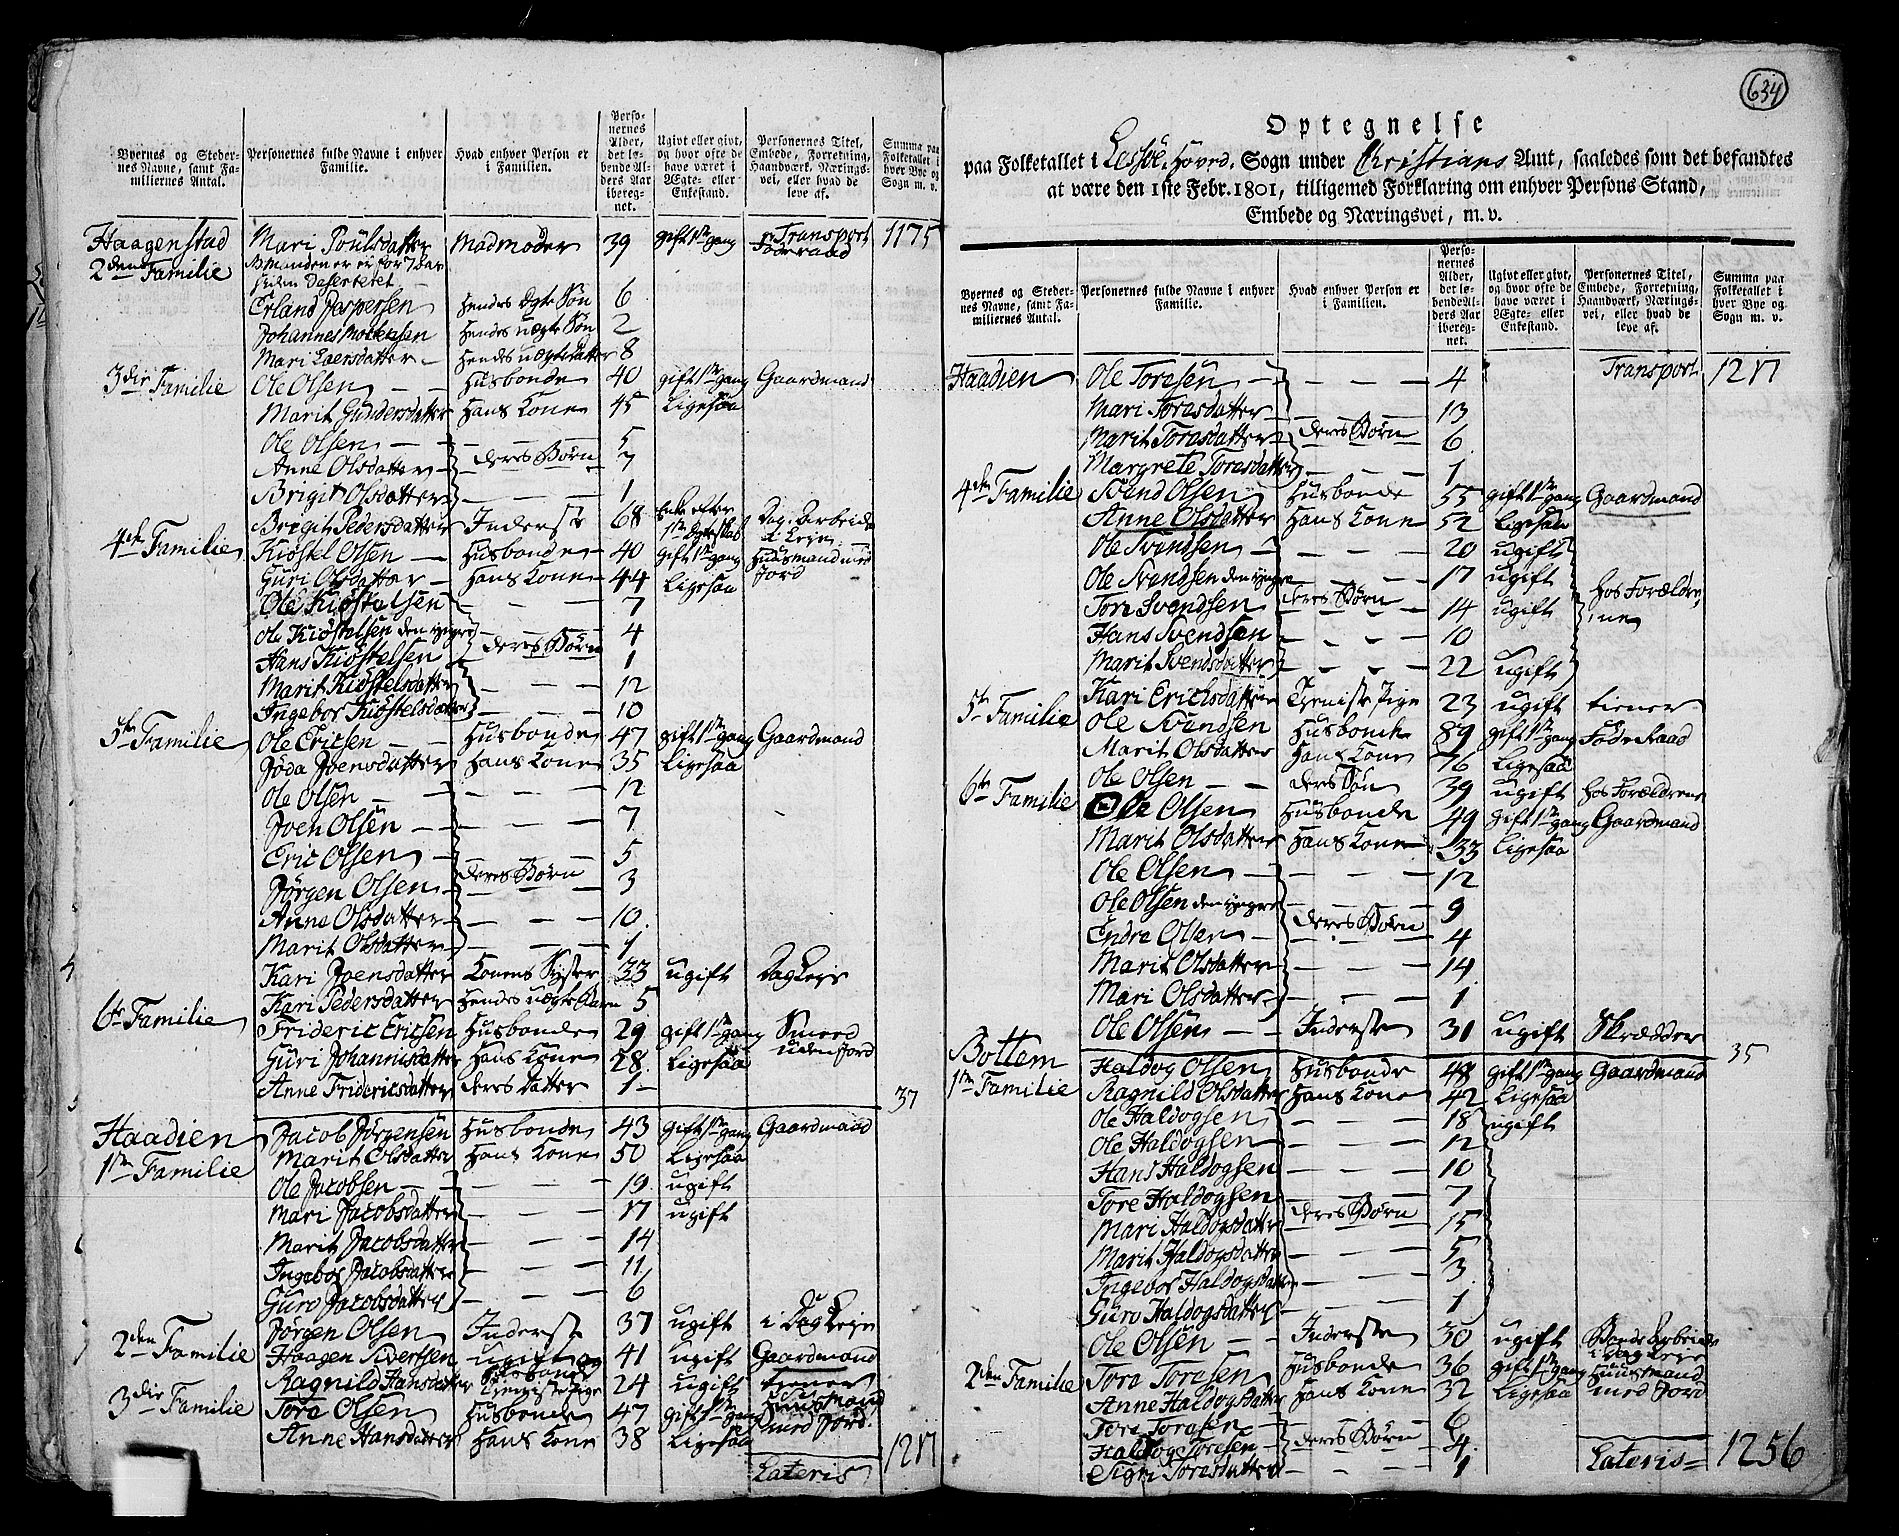 Byernes og Steder-
nes Navne, samt Fa-
miliernes Antal.
Personernes fulde Navne i enhver
Familie.
Hvad enhver Person er
i Familien.
Perso-
nernes
Alder,
det lø-
bende Al-
ders Aar
iberegnet.
Ugivt eller givt,
og hvor ofte de
have været i
Ægte- eller
Enkestand.
Personernes Titel,
Embede, Forretning,
Haandværk, Nærings-
vei, eller hvad de
leve af.
Summa paa
Folketallet i
hver Bye og
Sogn m. v.
Haagenstad Mari Poulsdatter Madmoder 39 gift 1ste gang Transport 1175
2den Familie
Erland Jespersen Hendes Ægte Søn 6
Johannes Hendes uægte Søn 2
Mari Laersdatter Hendes uægte datter 8
3die Familie Ole Olsen Husbonde 40 gift 1ste gang Gaardmand
Marit Gundersdatter Hans Kone 45 Ligesaa
Ole Olsen 5
Anne Olsdatter deres Børn 7
Brigit Olsdatter 1
Bregit Pedersdatter Inderste 68
4de Familie Kiøstel Olsen Husbonde 40 gift 1ste gang Huusmand med
Guri Olsdatter Hans Kone 44 Ligesaa Jord
Ole Kiøstelsen 7
Ole Kiøstelsen den yngre 4
Hans Kiøstelsen deres Børn 1
Marit Kiøstelsdatter 12
Ingebor Kiøstelsdatter 10
5te Familie Ole Ericsen Husbonde 47 gift 1ste gang Gaardmand
Jøda Joensdatter Hans Kone 35 Ligesaa
Ole Olsen 12
Joen Olsen 7
Eric Olsen 5
Jørgen Olsen deres Børn 3
Anne Olsdatter 10
Marit Olsdatter 1
Kari Joensdatter Konens Syster 33 ugift Dag Leje
Kari Pedersdatter Hendes uægte Barn 5
6te Familie Frideric Ericsen Husbonde 29 gift 1ste gang Smed
Guri Johannisdatter Hans Kone 28 Ligesaa uden Jord
Anne Fridericsdatter deres datter 1
37
Haadien Jacob Jørgensen Husbonde 43 gift 1ste gang Gaardmand
1ste Familie Marit Olsdatter Hans Kone 50 Ligesaa
Ole Jacobsen 19 ugift
Mari Jacobsdatter 17 ugift
Marit Jacobsdatter 14
Ingebor Jacobsdatter 11
Guro Jacobsdatter 6
Jørgen Olsen Inderste 37 ugift i Dag Leje
2den Familie Haagen Sivertsen ugift og Husbond 41 ugift Gaardmand
Ragnild Hansdatter Tieneste Pige 24 ugift tiener
3die Familie Tore Olsen Husbonde 47 gift 1ste gang Huusmand
Anne Hansdatter Hans Kone 38 Ligesaa med Jord
Lateris 1217
634
Optegnelse
paa Folketallet i Lessøe Hoved Sogn under Christians Amt, saaledes som det befandtes
at være den 1ste Febr. 1801, tilligemed Forklaring om enhver Persons Stand,
Embede og Næringsvei, m. v.
Byernes og Steder-
nes Navne, samt Fa-
miliernes Antal.
Personernes fulde Navne i enhver
Familie.
Hvad enhver Person er
i Familien.
Perso-
nernes
Alder,
det lø-
bende Al-
ders Aar
iberegnet.
Ugivt eller givt,
og hvor ofte de
have været i
Ægte- eller
Enkestand.
Personernes Titel,
Embede, Forretning,
Haandværk, Nærings-
vei, eller hvad de
leve af.
Summa paa
Folketallet i
hver Bye og
Sogn m. v.
Haadien Ole Toresen 4 Transport 1217
Mari Toresdatter 13
Marit Toresdatter deres Børn 6
Margrete Toresdatter 1
4de Familie Svend Olsen Husbonde 55 gift 1ste gang Gaardmand
Anne Olsdatter Hans Kone 52 Ligesaa
Ole Svendsen 20 ugift
Ole Svendsen den yngre 17 ugift
Tore Svendsen deres Børn 14 ugift hos Forældre-
Hans Svendsen 10 ne
Marit Svendsdatter 22 ugift
Kari Erichsdatter Tieneste Pige 23 ugift tiener
5te Familie Ole Svendsen Husbonde 89 gift 1ste gang Føde Raad
Marit Olsdatter Hans Kone 76 Ligesaa
Ole Olsen deres Søn 39 ugift hos Forældrene
6te Familie Ole Olsen Husbonde 49 gift 1ste gang Gaardmand
Marit Olsdatter Hans Kone 33 Ligesaa
Ole Olsen 12
Ole Olsen den yngre 9
Endre Olsen deres Børn 4
Marit Olsdatter 14
Mari Olsdatter 1
Ole Olsen Inderste 31 ugift Skrædder
35
Bottem Haldog Olsen Husbonde 48 gift 1ste gang Gaardmand
1ste Familie Ragnild Olsdatter Hans Kone 42 Ligesaa
Ole Haldogsen 18 ugift
Ole Haldogsen 12
Hans Haldogsen 10
Tore Haldogsen 7
Mari Haldogsdatter deres Børn 15
Marit Haldogsdatter 5
Ingebor Haldogsdatter 3
Guro Haldogsdatter 1
Ole Olsen Inderste 30 ugift
2den Familie Tore Toresen Husbonde 36 gift 1ste gang Huusmand
Anne Haldogsdatter Hans Kone 32 Ligesaa med Jord
Tore Toresen 6
Haldog Toresen deres Børn 4
Sigri Toresdatter 1
Lateris 1256